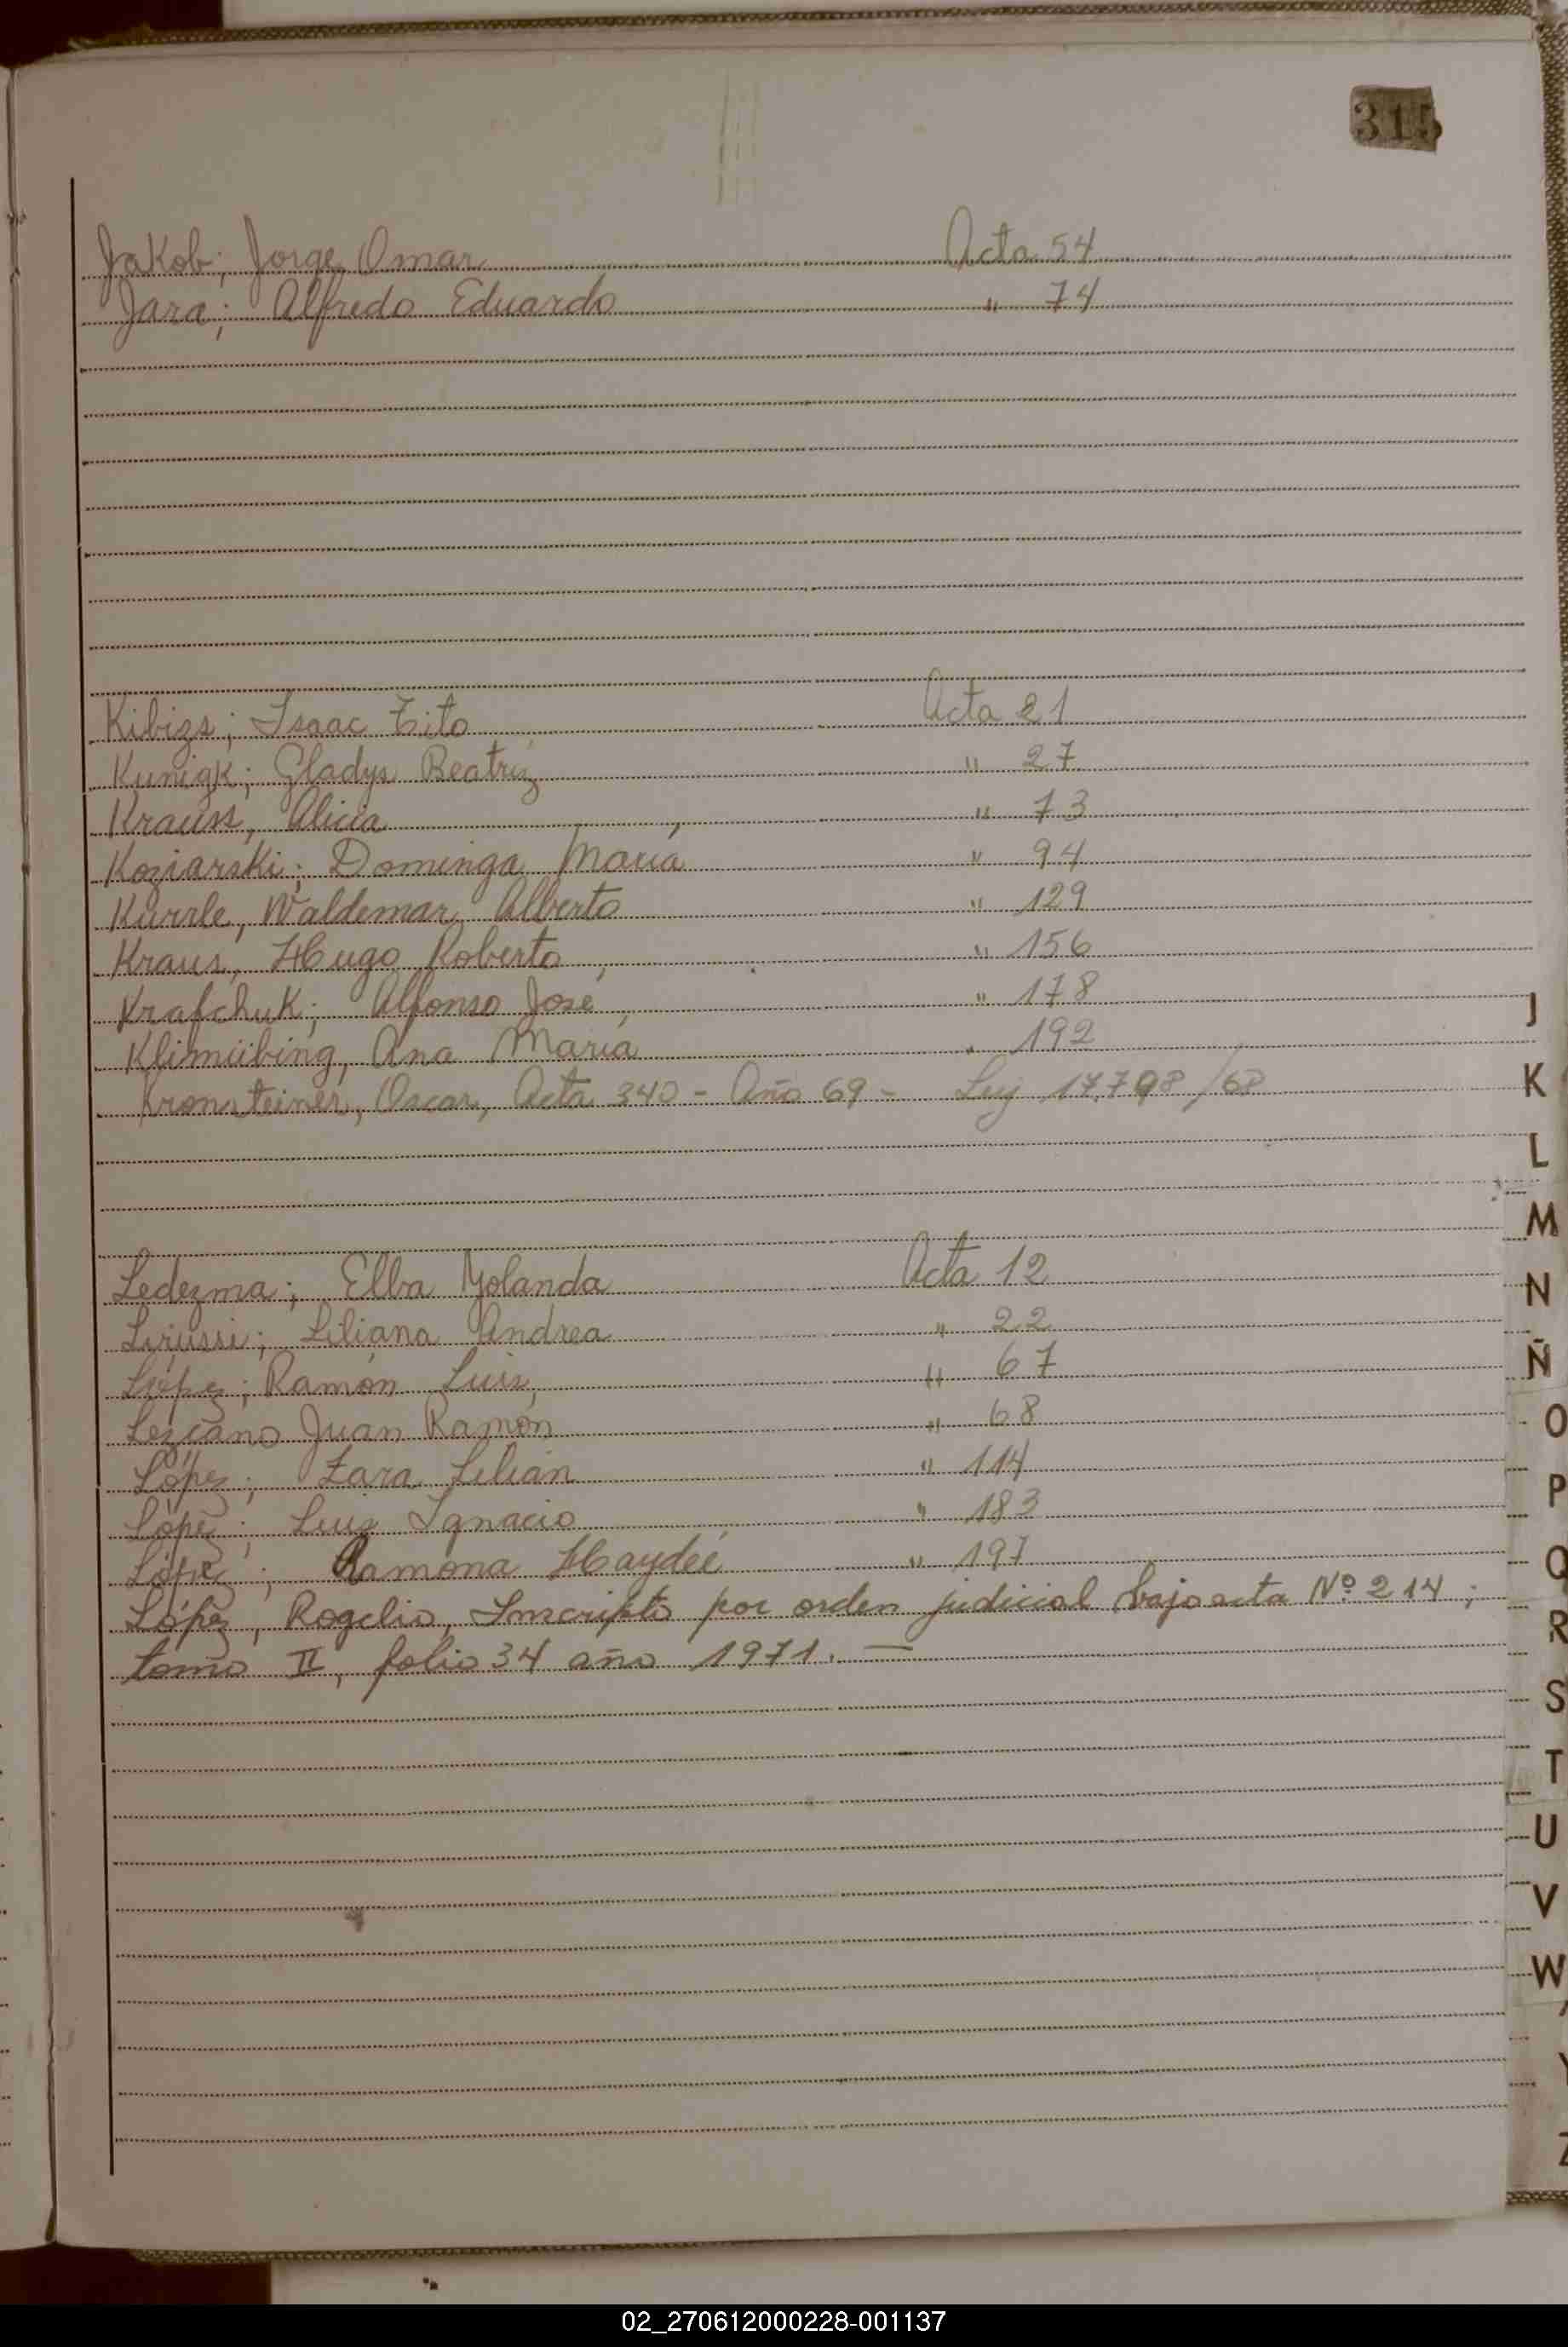 315
Jakob; Jorge Omar Acta 54
Jara; Alfredo Eduardo " 74
Kibizs; Isaac Tito Acta 21
Kunigk; Gladys Beatriz " 27
Krauss, Alicia " 73
Koziarski; Dominga María " 94
Kurrle, Waldemar Alberto " 129
Kraus, Hugo Roberto " 156
Krafchuk; Alfonso José " 178
Klimiübing, Ana María " 192
Kronsteiner, Oscar, Acta 340 - Año 69 - Ley 17.798/68
Ledezma; Elba Yolanda Acta 12
Lirussi; Liliana Andrea " 22
López; Ramón Luis " 67
Lezcano Juan Ramón " 68
López; Zara Lilian " 114
López; Luis Ignacio " 183
López; Ramona Haydeé " 197
López, Rogelio, Inscripto por orden judicial bajo acta Nº 214;
tomo II, folio 34 año 1971. —
J
K
L
M
N
Ñ
O
P
Q
R
S
T
U
V
W
Z
02_270612000228-001137